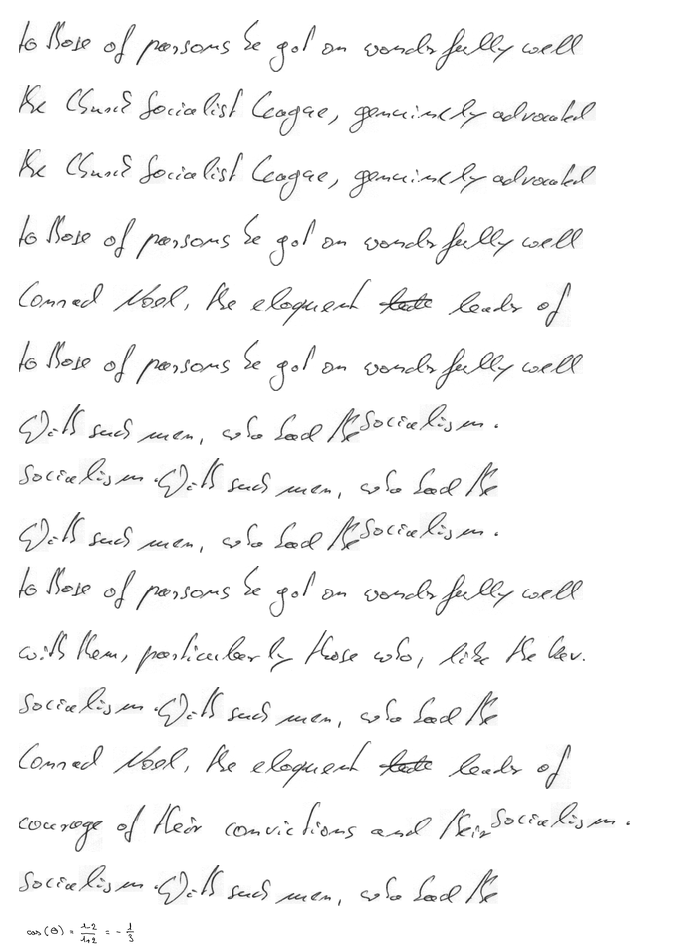 to those of parsons he got on wonderfully well
the Church Socialist League, genuinely advocated
the Church Socialist League, genuinely advocated
to those of parsons he got on wonderfully well
Conrad Noel, the eloquent leader of
to those of parsons he got on wonderfully well
With such men, who had the Socialism.
Socialism. With such men, who had the
With such men, who had the Socialism.
to those of parsons he got on wonderfully well
with them, particularly those who, like the Rev.
Socialism. With such men, who had the
Conrad Noel, the eloquent leader of
courage of their convictions and their Socialism.
Socialism. With such men, who had the
cos(θ) = \frac{1-2}{1+2} = -\frac{1}{3}